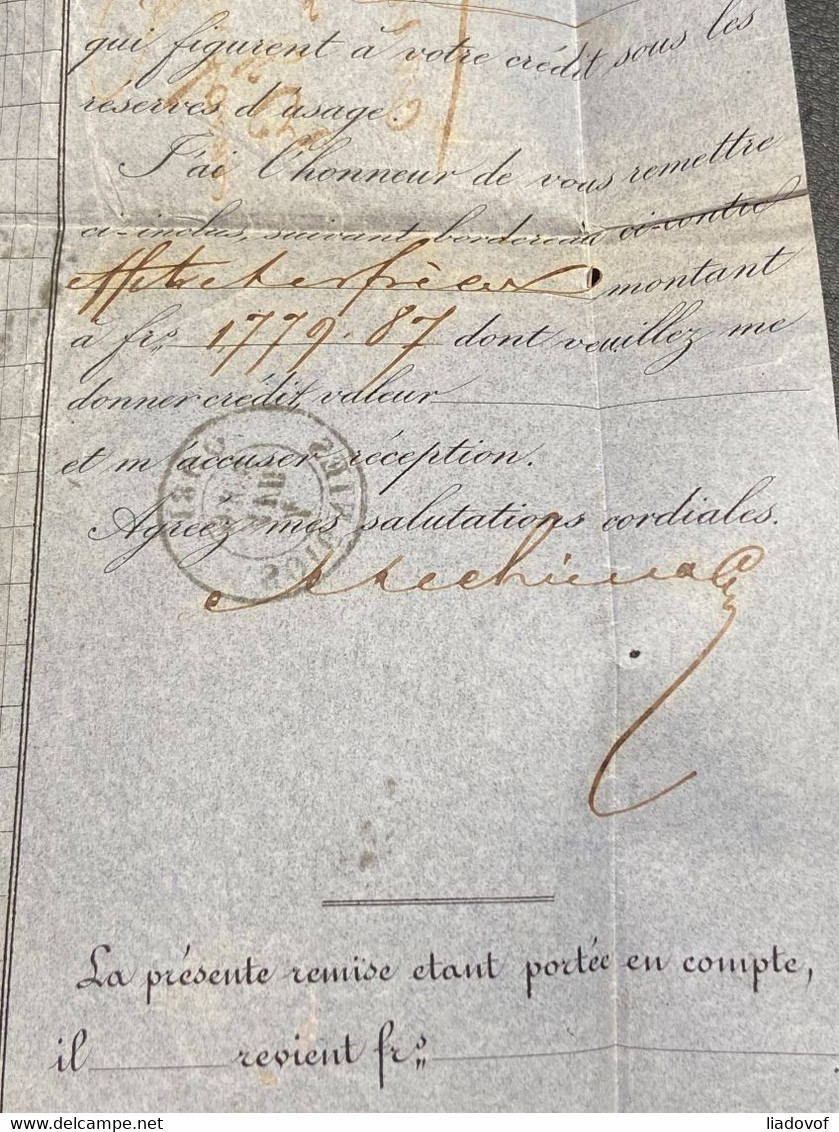 qui figurent à votre crédit sous les
réserves d'usage.
J'ai l'honneur de vous remettre
ci-inclus, suivant bordereau ci-contre
montant
à frs. 1,779.87 dont veuillez me
donner crédit, valeur
et m'accuser réception.
Agréez mes salutations cordiales.
La présente remise etant portée en compte,
il revient frs
delcampe.net
liadovof